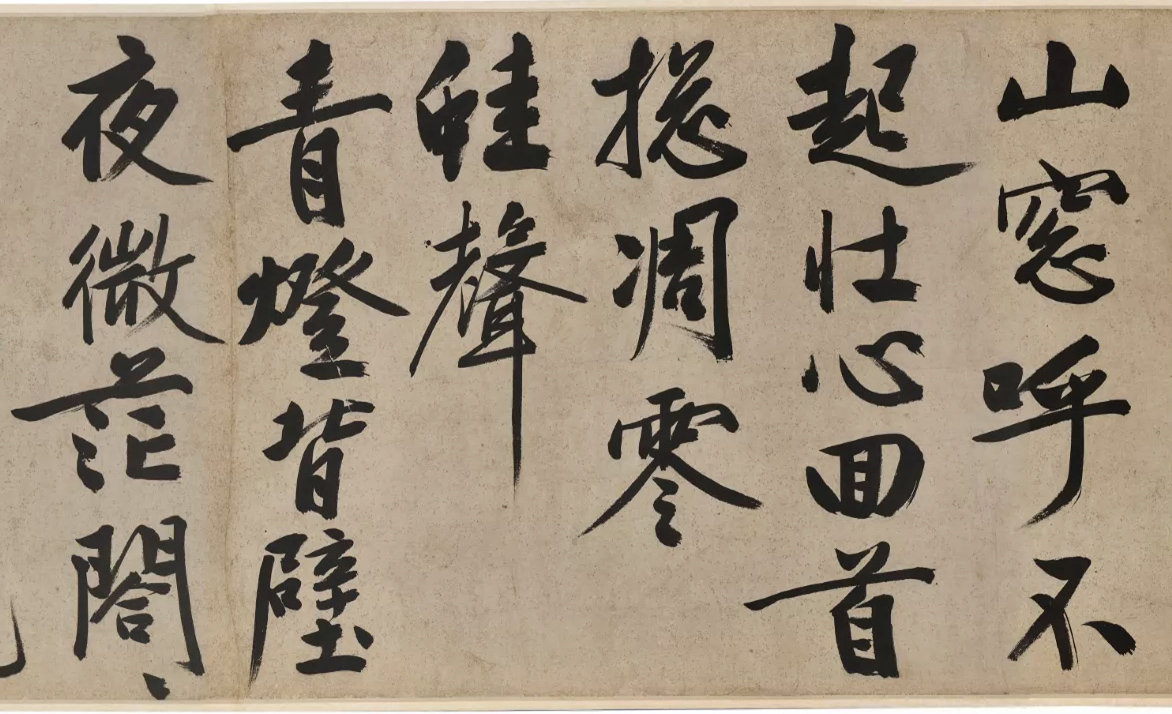 山窓呼不
起壮心回首
捴凋零
蛙聲
青燈背壁
夜微茫閣〻